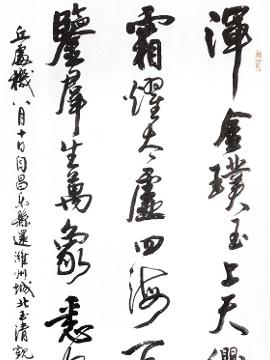 渾金璞玉上天
霜耀太虛四海
鑒群生萬象悉
丘處機八月十日自昌樂縣還濰州城北玉清觀